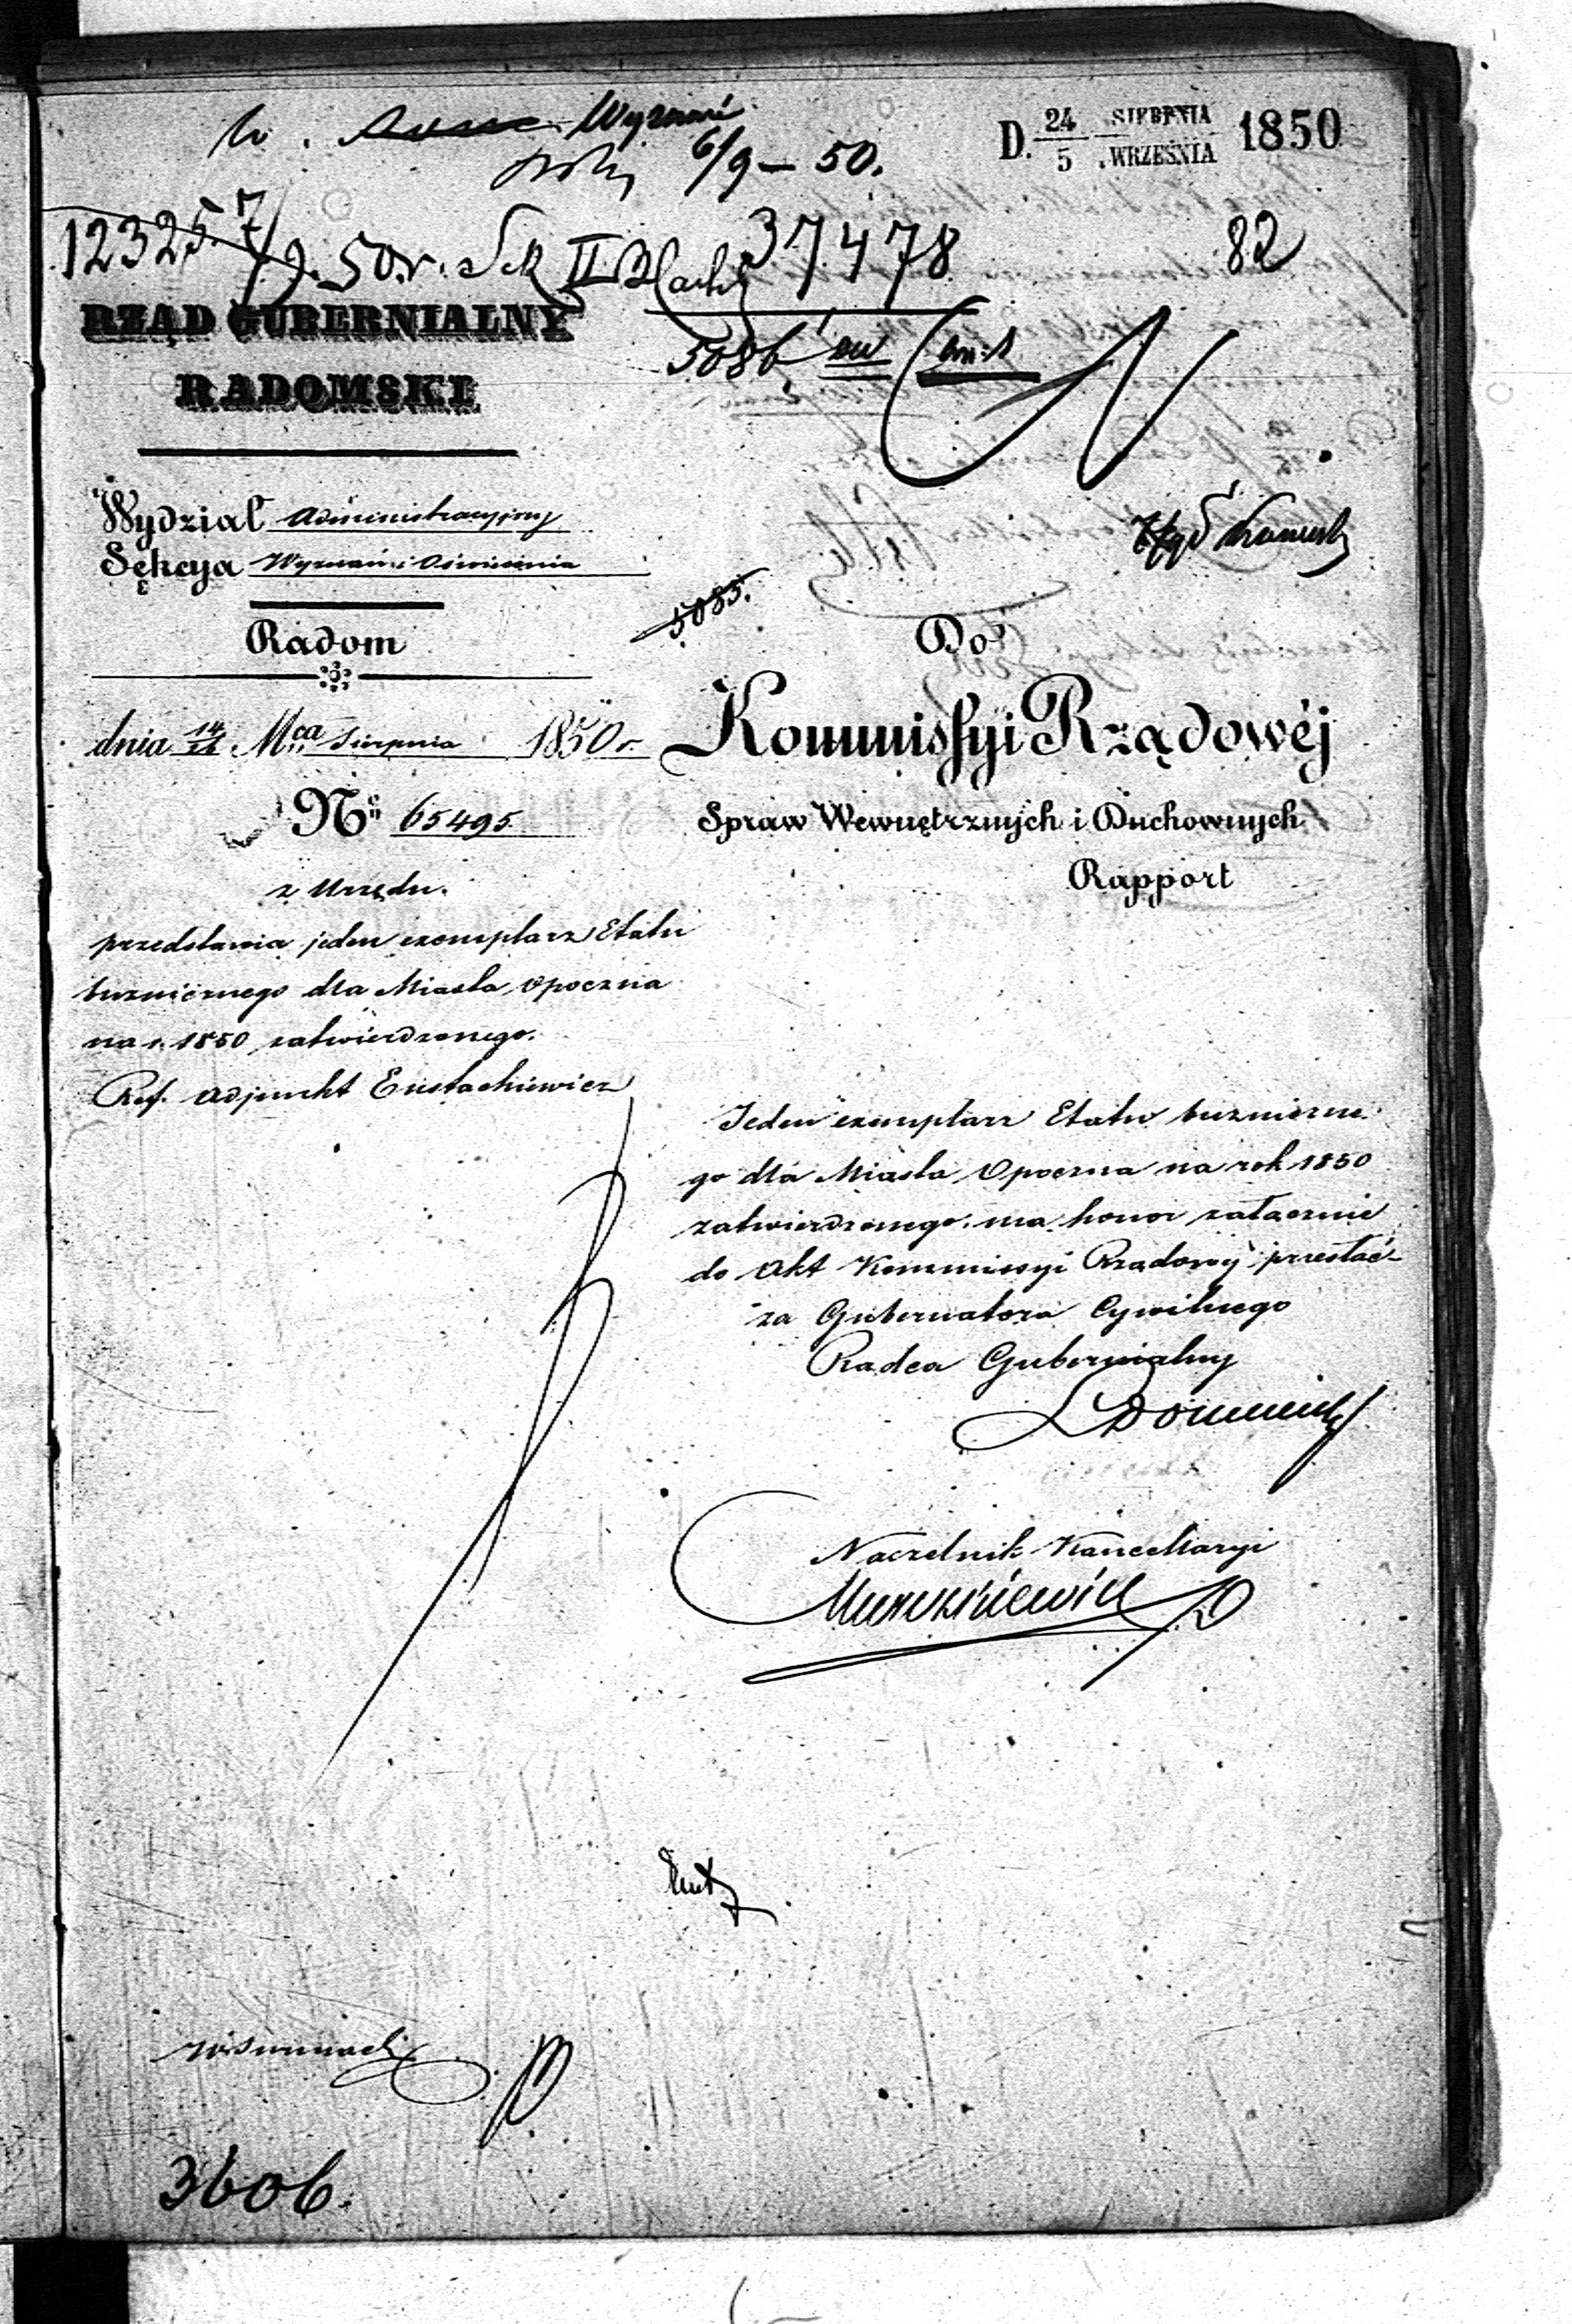 Wyznań
6/9 – 50.
D. 24/5 SIERPNIA WRZEŚNIA 1850
12325 7/9. 50. r. Sek II 37478
82
5086
RZĄD GUBERNIALNY
RADOMSKI
Wydział Administracyjny
Sekcya Wyznań i Oświecenia
Radom
5085.
dnia 14/26 Mca Sierpnia 1850 r.
No 65495
z Urzędu.
przedstawia jeden exemplarz Etatu
buznicznego dla Miasta Opoczna
na r. 1850 zatwierdzonego.
Ref. Adjunkt Eustachiewicz
Do
Kommissyi Rządowéj
Spraw Wewnętrznych i Duchownych
Rapport
Jeden exemplarz Etatu buzniczne
go dla Miasta Opoczna na rok 1850
zatwierdzonego, ma honor załącznie
do Akt Kommissyi Rządowej przesłać
za Gubernatora Cywilnego
Radca Gubernialny
Naczelnik Kancellaryi
3606.